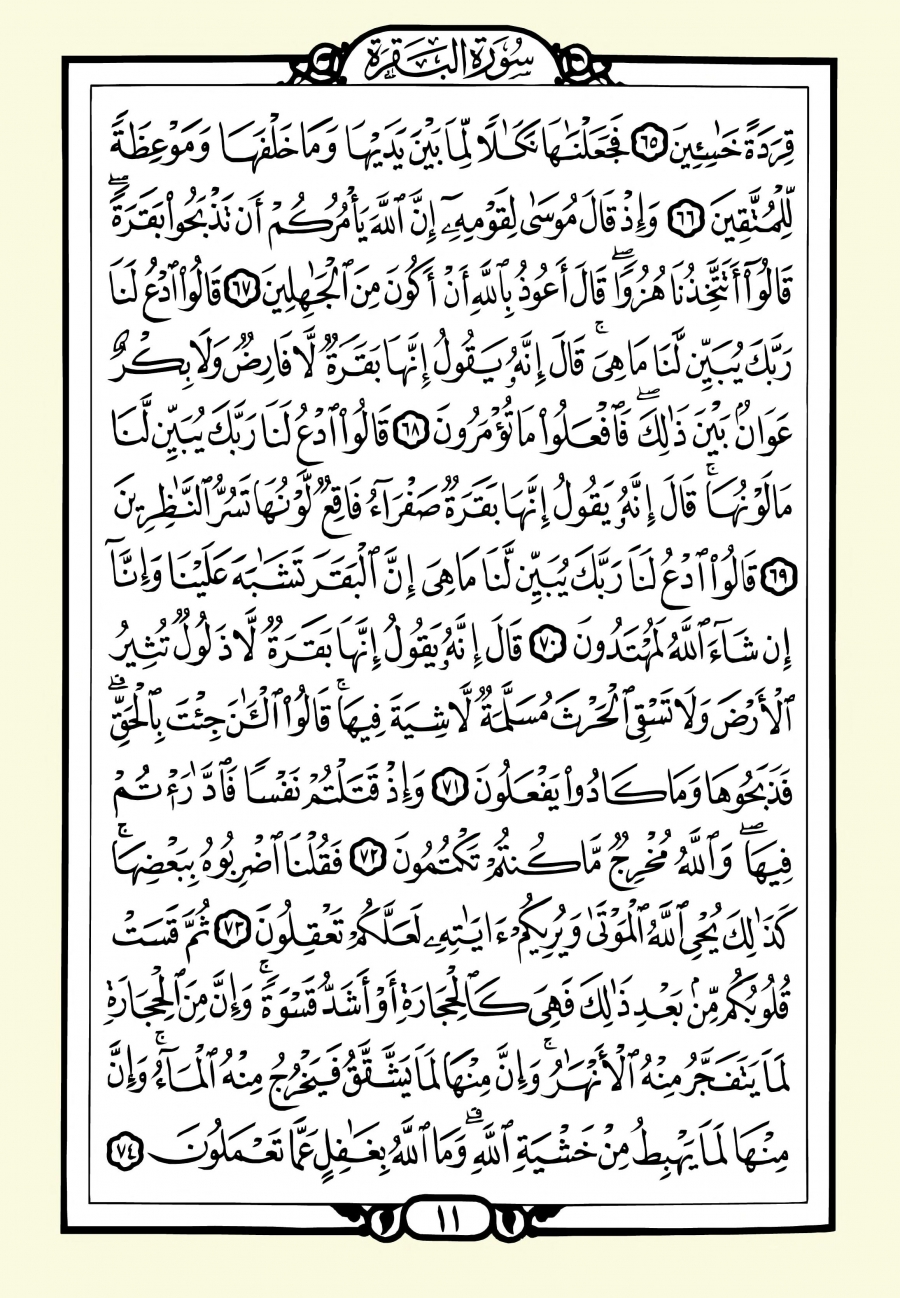 سُورَةُ البَقَرَة
قِرَدَةً خَٰسِـِٔينَ ٦٥ فَجَعَلْنَٰهَا نَكَٰلًا لِّمَا بَيْنَ يَدَيْهَا وَمَا خَلْفَهَا وَمَوْعِظَةً
لِّلْمُتَّقِينَ ٦٦ وَإِذْ قَالَ مُوسَىٰ لِقَوْمِهِۦٓ إِنَّ ٱللَّهَ يَأْمُرُكُمْ أَن تَذْبَحُوا۟ بَقَرَةً ۖ
قَالُوٓا۟ أَتَتَّخِذُنَا هُزُوًا ۖ قَالَ أَعُوذُ بِٱللَّهِ أَنْ أَكُونَ مِنَ ٱلْجَٰهِلِينَ ٦٧ قَالُوا۟ ٱدْعُ لَنَا
رَبَّكَ يُبَيِّن لَّنَا مَا هِىَ ۚ قَالَ إِنَّهُۥ يَقُولُ إِنَّهَا بَقَرَةٌ لَّا فَارِضٌ وَلَا بِكْرٌ
عَوَانٌۢ بَيْنَ ذَٰلِكَ ۖ فَٱفْعَلُوا۟ مَا تُؤْمَرُونَ ٦٨ قَالُوا۟ ٱدْعُ لَنَا رَبَّكَ يُبَيِّن لَّنَا
مَا لَوْنُهَا ۚ قَالَ إِنَّهُۥ يَقُولُ إِنَّهَا بَقَرَةٌ صَفْرَآءُ فَاقِعٌ لَّوْنُهَا تَسُرُّ ٱلنَّٰظِرِينَ
٦٩ قَالُوا۟ ٱدْعُ لَنَا رَبَّكَ يُبَيِّن لَّنَا مَا هِىَ إِنَّ ٱلْبَقَرَ تَشَٰبَهَ عَلَيْنَا وَإِنَّآ
إِن شَآءَ ٱللَّهُ لَمُهْتَدُونَ ٧٠ قَالَ إِنَّهُۥ يَقُولُ إِنَّهَا بَقَرَةٌ لَّا ذَلُولٌ تُثِيرُ
ٱلْأَرْضَ وَلَا تَسْقِى ٱلْحَرْثَ مُسَلَّمَةٌ لَّا شِيَةَ فِيهَا ۚ قَالُوا۟ ٱلْـَٰٔنَ جِئْتَ بِٱلْحَقِّ ۚ
فَذَبَحُوهَا وَمَا كَادُوا۟ يَفْعَلُونَ ٧١ وَإِذْ قَتَلْتُمْ نَفْسًا فَٱدَّٰرَْٰٔتُمْ
فِيهَا ۖ وَٱللَّهُ مُخْرِجٌ مَّا كُنتُمْ تَكْتُمُونَ ٧٢ فَقُلْنَا ٱضْرِبُوهُ بِبَعْضِهَا ۚ
كَذَٰلِكَ يُحْىِ ٱللَّهُ ٱلْمَوْتَىٰ وَيُرِيكُمْ ءَايَٰتِهِۦ لَعَلَّكُمْ تَعْقِلُونَ ٧٣ ثُمَّ قَسَتْ
قُلُوبُكُم مِّنۢ بَعْدِ ذَٰلِكَ فَهِىَ كَٱلْحِجَارَةِ أَوْ أَشَدُّ قَسْوَةً ۚ وَإِنَّ مِنَ ٱلْحِجَارَةِ
لَمَا يَتَفَجَّرُ مِنْهُ ٱلْأَنْهَٰرُ ۚ وَإِنَّ مِنْهَا لَمَا يَشَّقَّقُ فَيَخْرُجُ مِنْهُ ٱلْمَآءُ ۚ وَإِنَّ
مِنْهَا لَمَا يَهْبِطُ مِنْ خَشْيَةِ ٱللَّهِ ۗ وَمَا ٱللَّهُ بِغَٰفِلٍ عَمَّا تَعْمَلُونَ ٧٤
١١